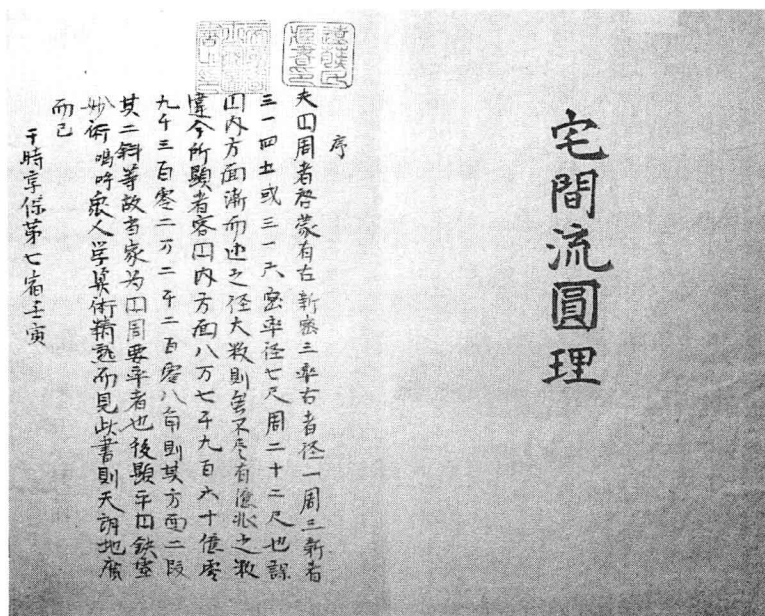 宅間流圓理
序
夫円周者啓蒙有古新密三率古者径一周三新者
三一四五或三一六密率径七尺周二十二尺也誤
円内方面漸而之径大数則無不尽有隠兆之数
違今所顕者容円内方面八万七千九百六十億零
九千三百零二万二千二百零八角則其方面二段
其二斜等故当家为円周要率者也後顕平円密
妙術嗚呼衆人学筭術精熟而見此書則天朗地廣
而已
于時享保第七宿壬寅